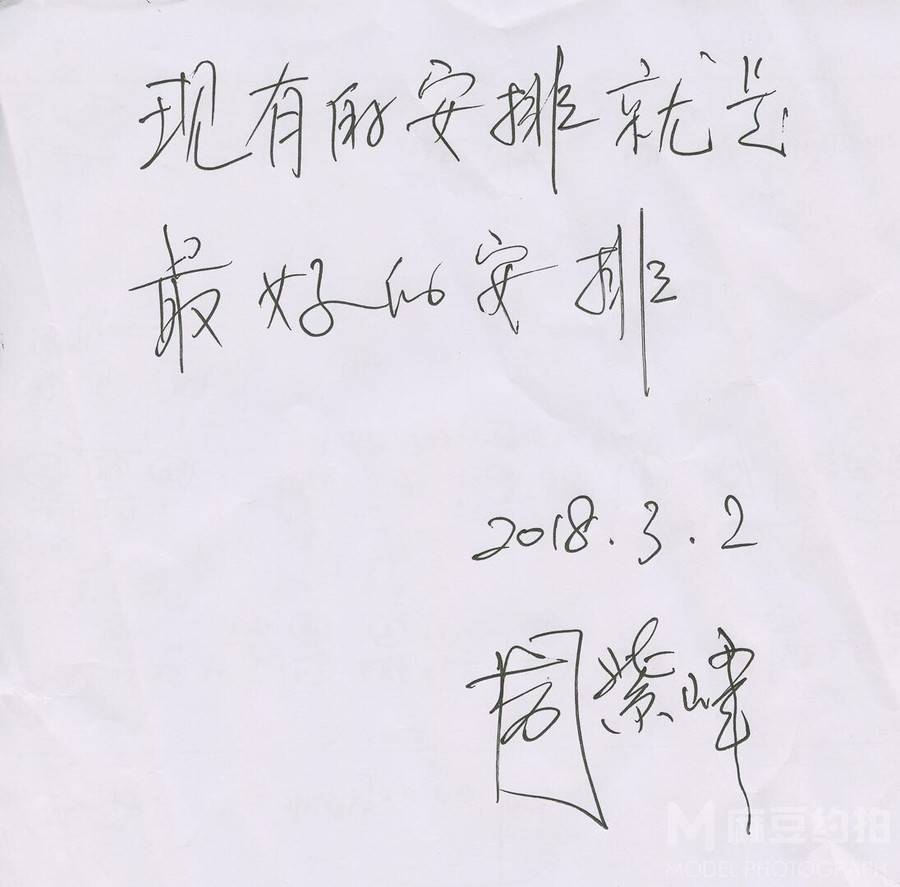 现有的安排就是
最好的安排
2018.3.2
周紫峰
M 麻豆约拍
MODEL PHOTOGRAPH